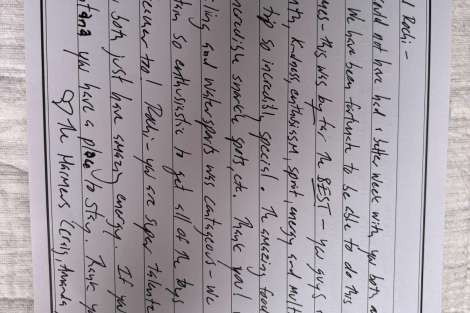 d Rachi -
could not have had a better week with you both a
We have been fortunate to be able to do this
- this was by far the BEST - you guys
kindness, enthusiasm, spirit, energy and mult
trip so incredibly special. The amazing food
snorkel spots, etc. Thank you!
ling and watersports was contagious - we
so enthusiastic to get all of the toys
too! Rachi - you are super talente
both just have amazing energy. If you
tana you have a place to stay. Thank yo
The (Craig, Amanda